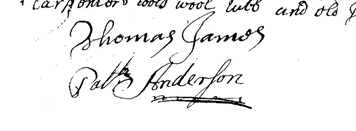 Carpenters tools wool tubb and old
Thomas James
Patk Anderson